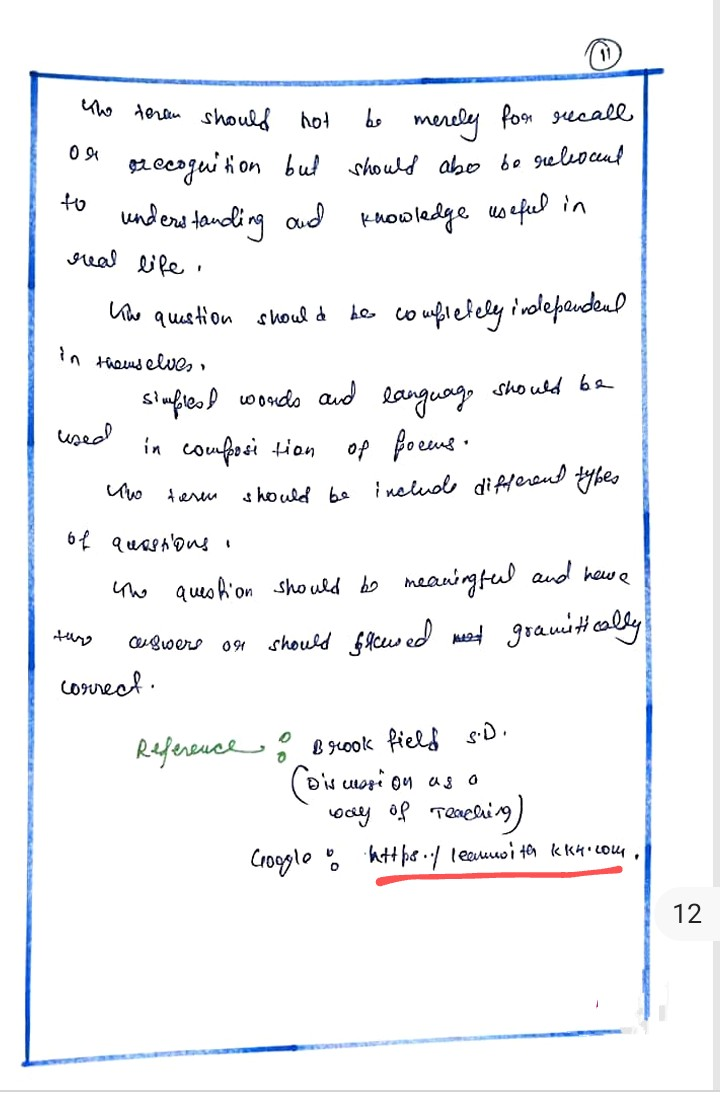 11
The term should not be merely for recall
or recognition but should also be relevant
to understanding and knowledge useful in
real life.
The question should be completely independent
in themselves.
simplest words and language should be
used in composition of
The term should be include different types
of questions.
The question should be meaningful and have
two answers or should gramittically
correct.
Reference : Brook field S.D.
(Discussion as a
way of Teaching)
Google : https:/ learnwith kkh.com.
12